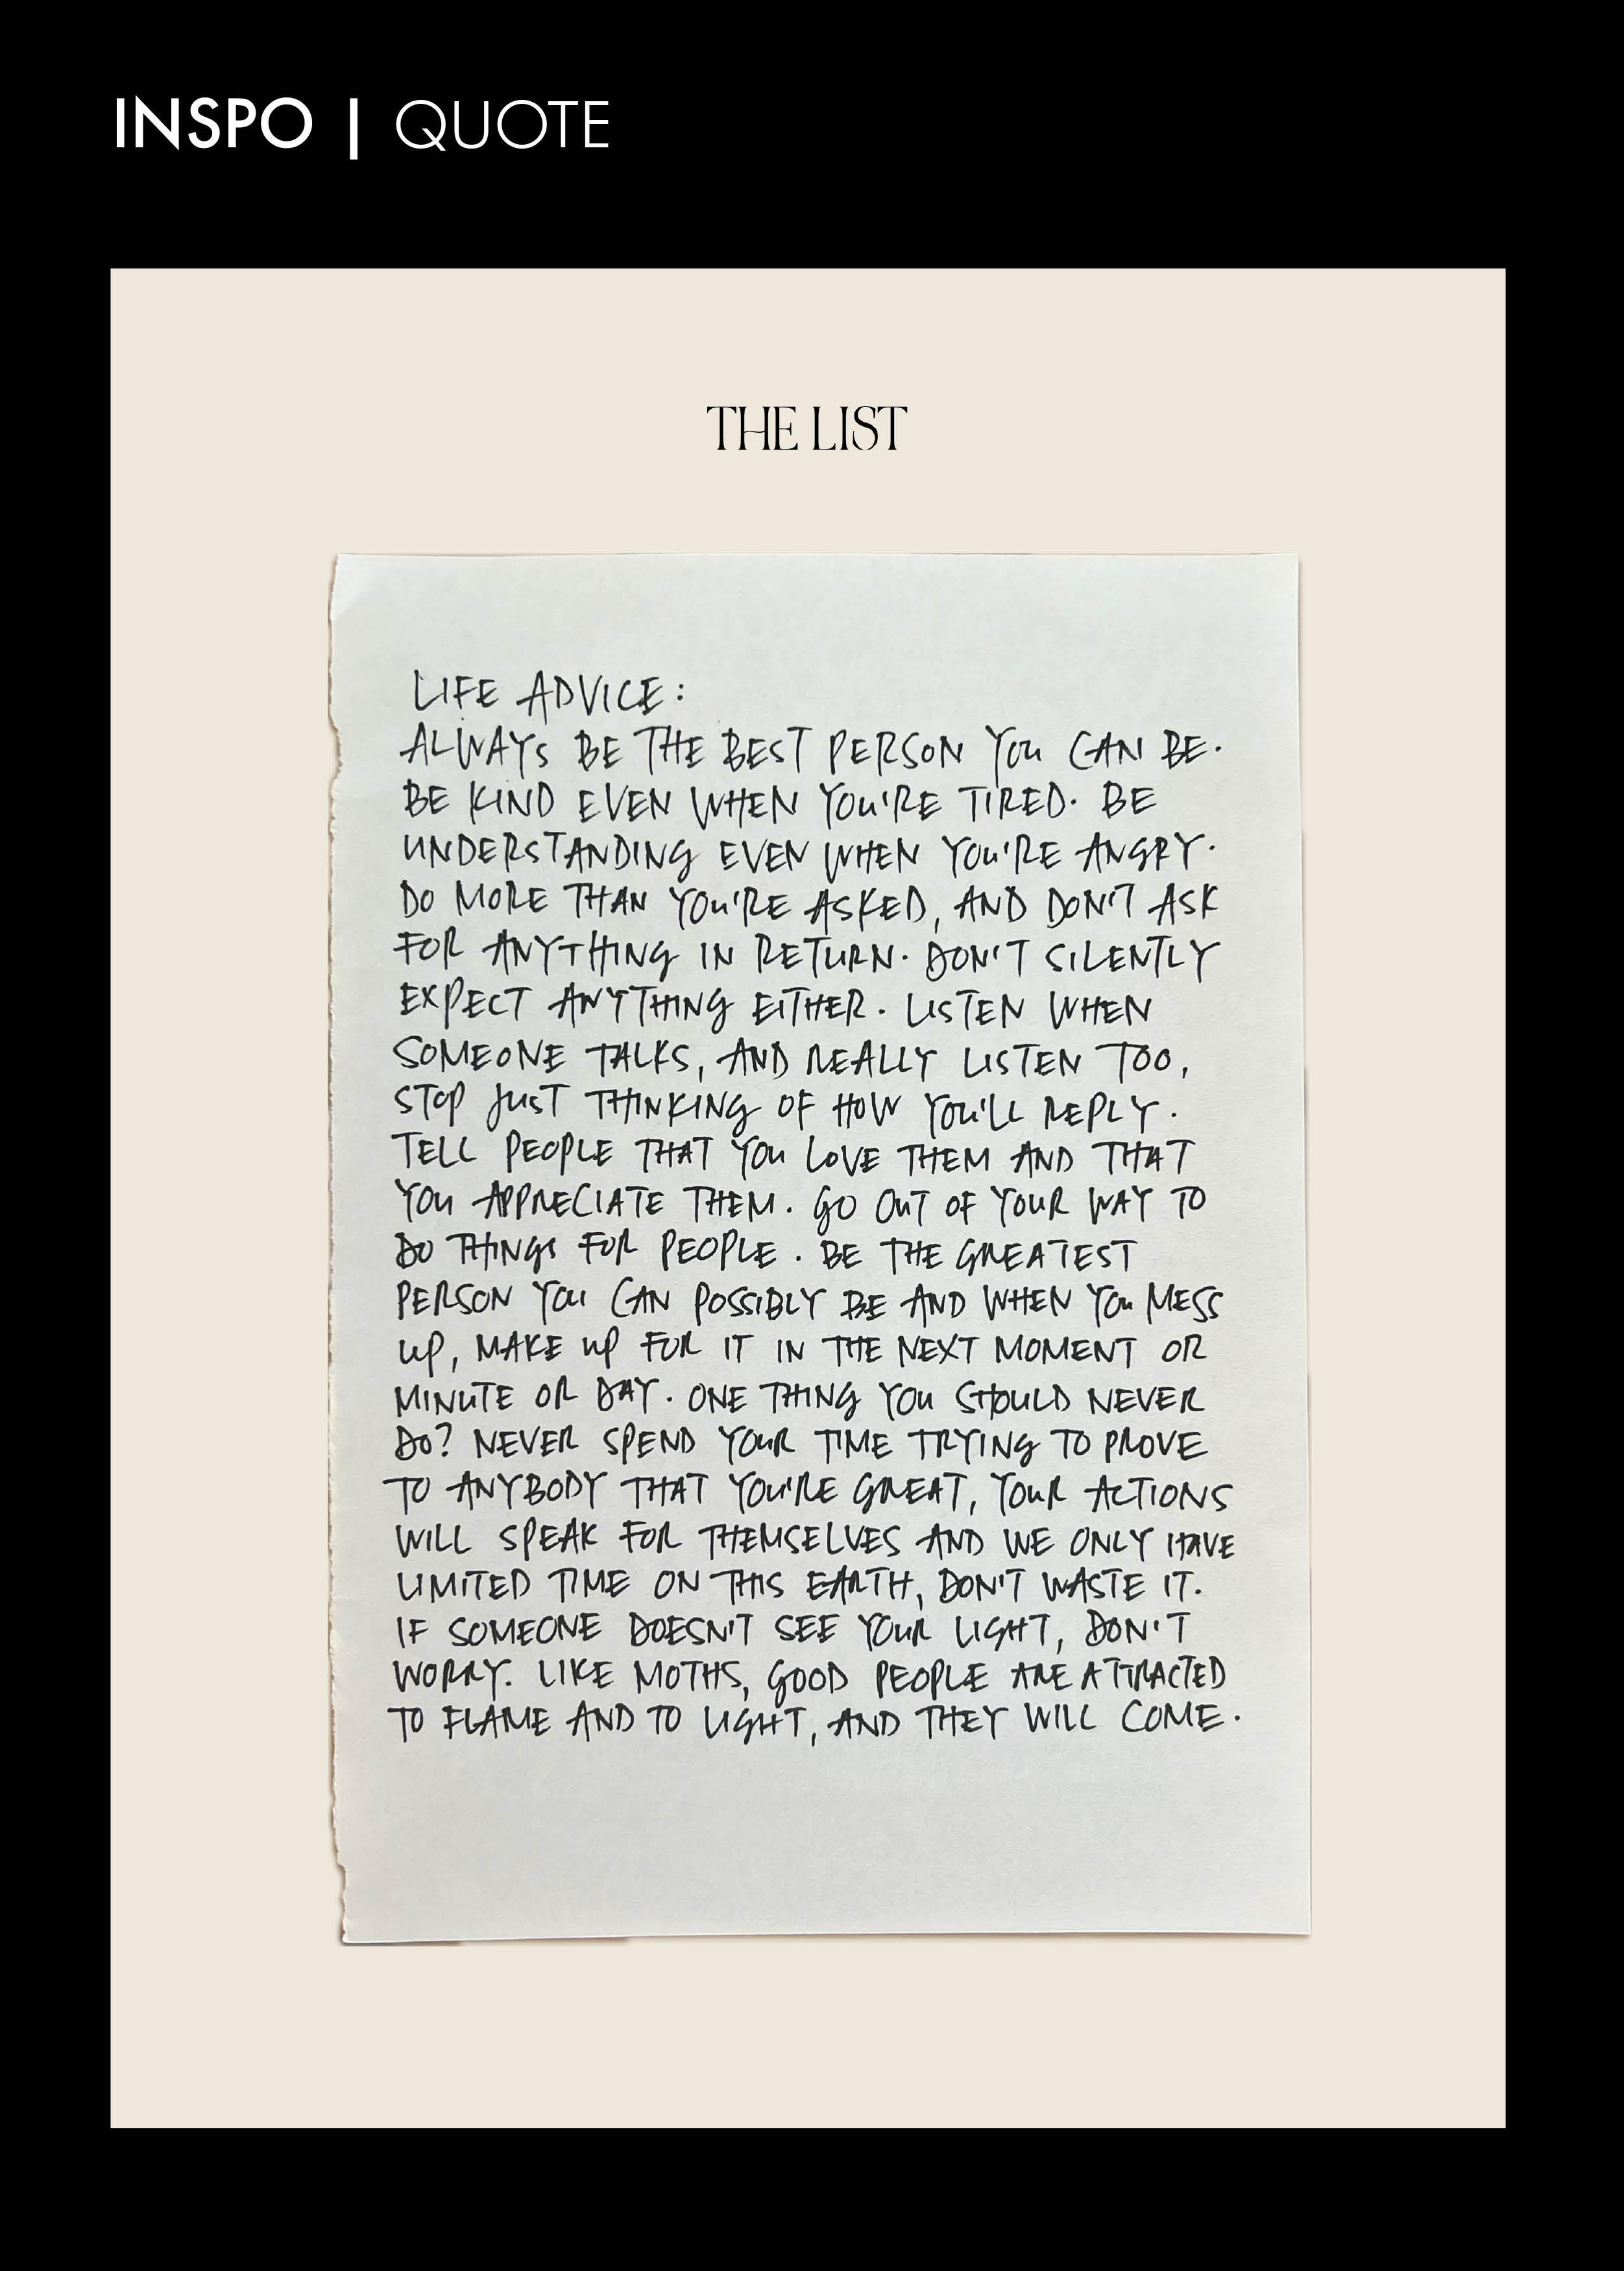 INSPO | QUOTE
THE LIST
LIFE ADVICE:
ALWAYS BE THE BEST PERSON YOU CAN BE.
BE KIND EVEN WHEN YOU'RE TIRED. BE
UNDERSTANDING EVEN WHEN YOU'RE ANGRY.
DO MORE THAN YOU'RE ASKED, AND DON'T ASK
FOR ANYTHING IN RETURN. DON'T SILENTLY
EXPECT ANYTHING EITHER. LISTEN WHEN
SOMEONE TALKS, AND REALLY LISTEN TOO,
STOP JUST THINKING OF HOW YOU'LL REPLY.
TELL PEOPLE THAT YOU LOVE THEM AND THAT
YOU APPRECIATE THEM. GO OUT OF YOUR WAY TO
DO THINGS FOR PEOPLE. BE THE GREATEST
PERSON YOU CAN POSSIBLY BE AND WHEN YOU MESS
UP, MAKE UP FOR IT IN THE NEXT MOMENT OR
MINUTE OR DAY. ONE THING YOU SHOULD NEVER
DO? NEVER SPEND YOUR TIME TRYING TO PROVE
TO ANYBODY THAT YOU'RE GREAT, YOUR ACTIONS
WILL SPEAK FOR THEMSELVES AND WE ONLY HAVE
LIMITED TIME ON THIS EARTH, DON'T WASTE IT.
IF SOMEONE DOESN'T SEE YOUR LIGHT, DON'T
WORRY. LIKE MOTHS, GOOD PEOPLE ARE ATTRACTED
TO FLAME AND TO LIGHT, AND THEY WILL COME.